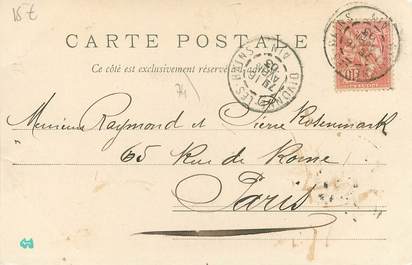 15 €
CARTE POSTALE
Ce côté est exclusivement réservé à l'adresse
DIVONNE-LES-BAINS
AIN
03
10
74
Messieurs Raymond et Pierre Rosenmark
65 Rue de Rome
Paris